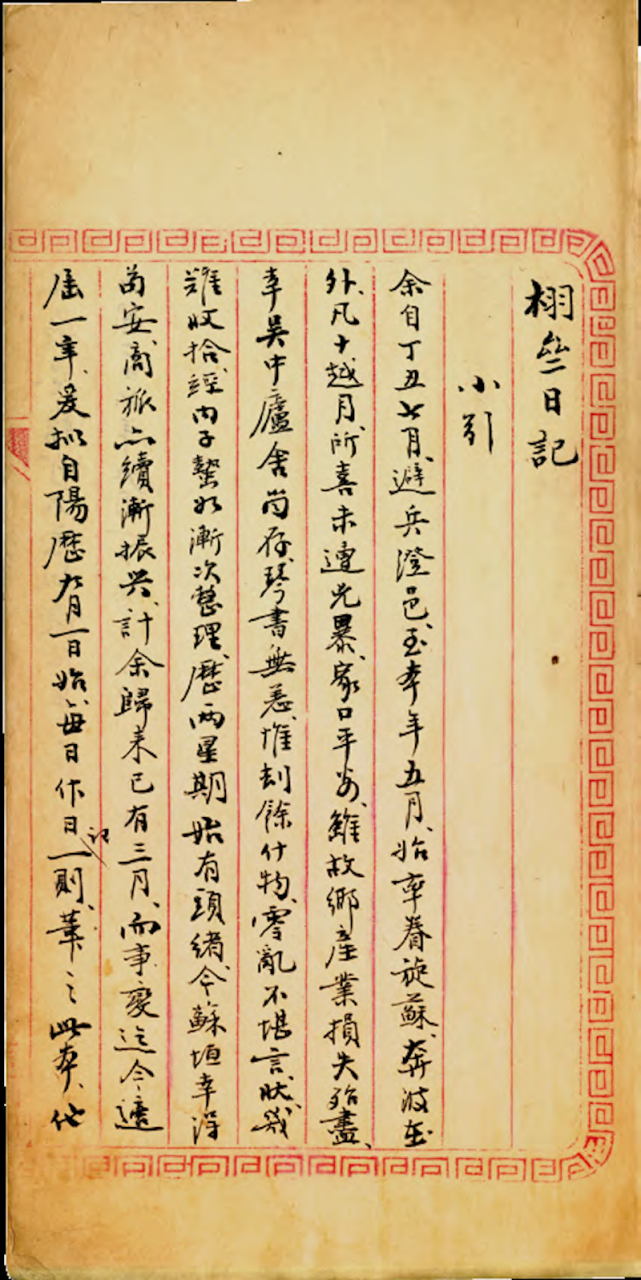 栩盦日記
小引
余自丁丑七月、避兵澄邑、至本年五月、始率眷旋蘇、奔波在
外、凡十越月、所喜未遭兇暴、家口平安、雖故鄉產業損失殆盡、
幸吳中廬舍尚存、琴書無恙、惟刦餘什物、零亂不堪言狀、幾
難收拾、經內子整比漸次整理、歷兩星期、始有頭緒、今蘇垣幸得
苟安、商旅亦續漸振興、計余歸來已有三月、而事變迄今適
屆一年、爰擬自陽歷九月一日始、每日作日記一則、筆之此本、他